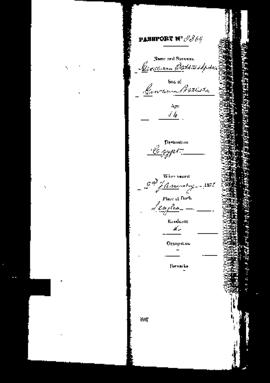 PASSPORT Nº
Name and Surname
Giovanni
Son of
Giovanni Battista
Age
14
Destination
Egypt
When issued
2nd January 187
Place of Birth
Senglea
Residence
do
Occupation
Remarks